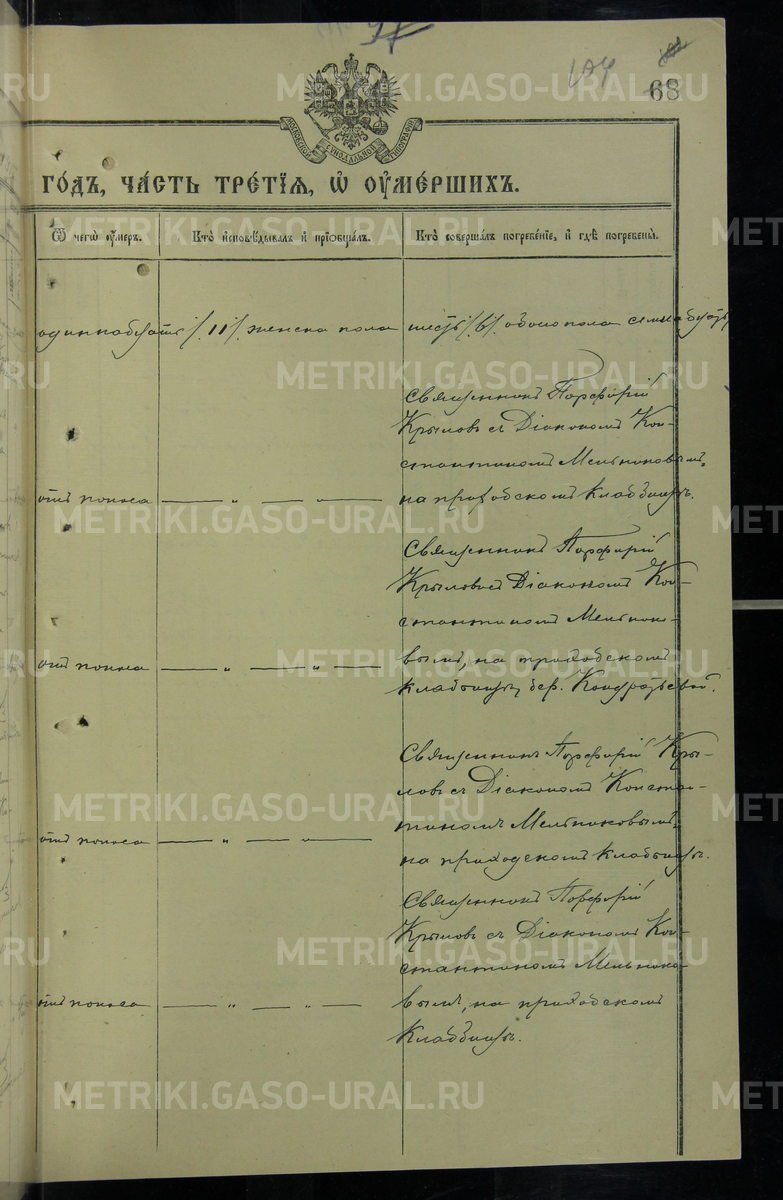 68
МОСКОВСКОЙ СѴНОДАЛЬНОЙ ТИПОГРАФІИ
го́дъ, ча́сть тре́тїѧ, ѡ҆ ᲂу҆ме́ршихъ.
Ѿ чегѡ̀ ᲂу҆́меръ.
Кто̀ и҆сповѣ́дывалъ и҆ прїѡбща́лъ.
Кто̀ соверша́лъ погребе́нїе, и҆ гдѣ̀ погребены̀.
одиннадцать /.11/. женска пола шесть /.6/. обоего пола
Священникъ Порфирій
Крыловъ съ Діакономъ Кон-
стантиномъ Мельниковымъ,
отъ поноса — „ — „ — на приходскомъ кладбищѣ.
Священникъ Порфирій
Крыловъ съ Діакономъ Кон-
стантиномъ Мельнико-
отъ поноса — „ — „ — вымъ, на приходскомъ
кладбищѣ дер. Кондратьевой.
Священникъ Порфирій Кры-
ловъ съ Діакономъ Констан-
тиномъ Мельниковымъ,
отъ поноса — „ — „ — на приходскомъ кладбищѣ.
Священникъ Порфирій
Крыловъ съ Діакономъ Кон-
стантиномъ Мельнико-
отъ поноса — „ — „ — вымъ, на приходскомъ
кладбищѣ.
METRIKI.GASO-URAL.RU